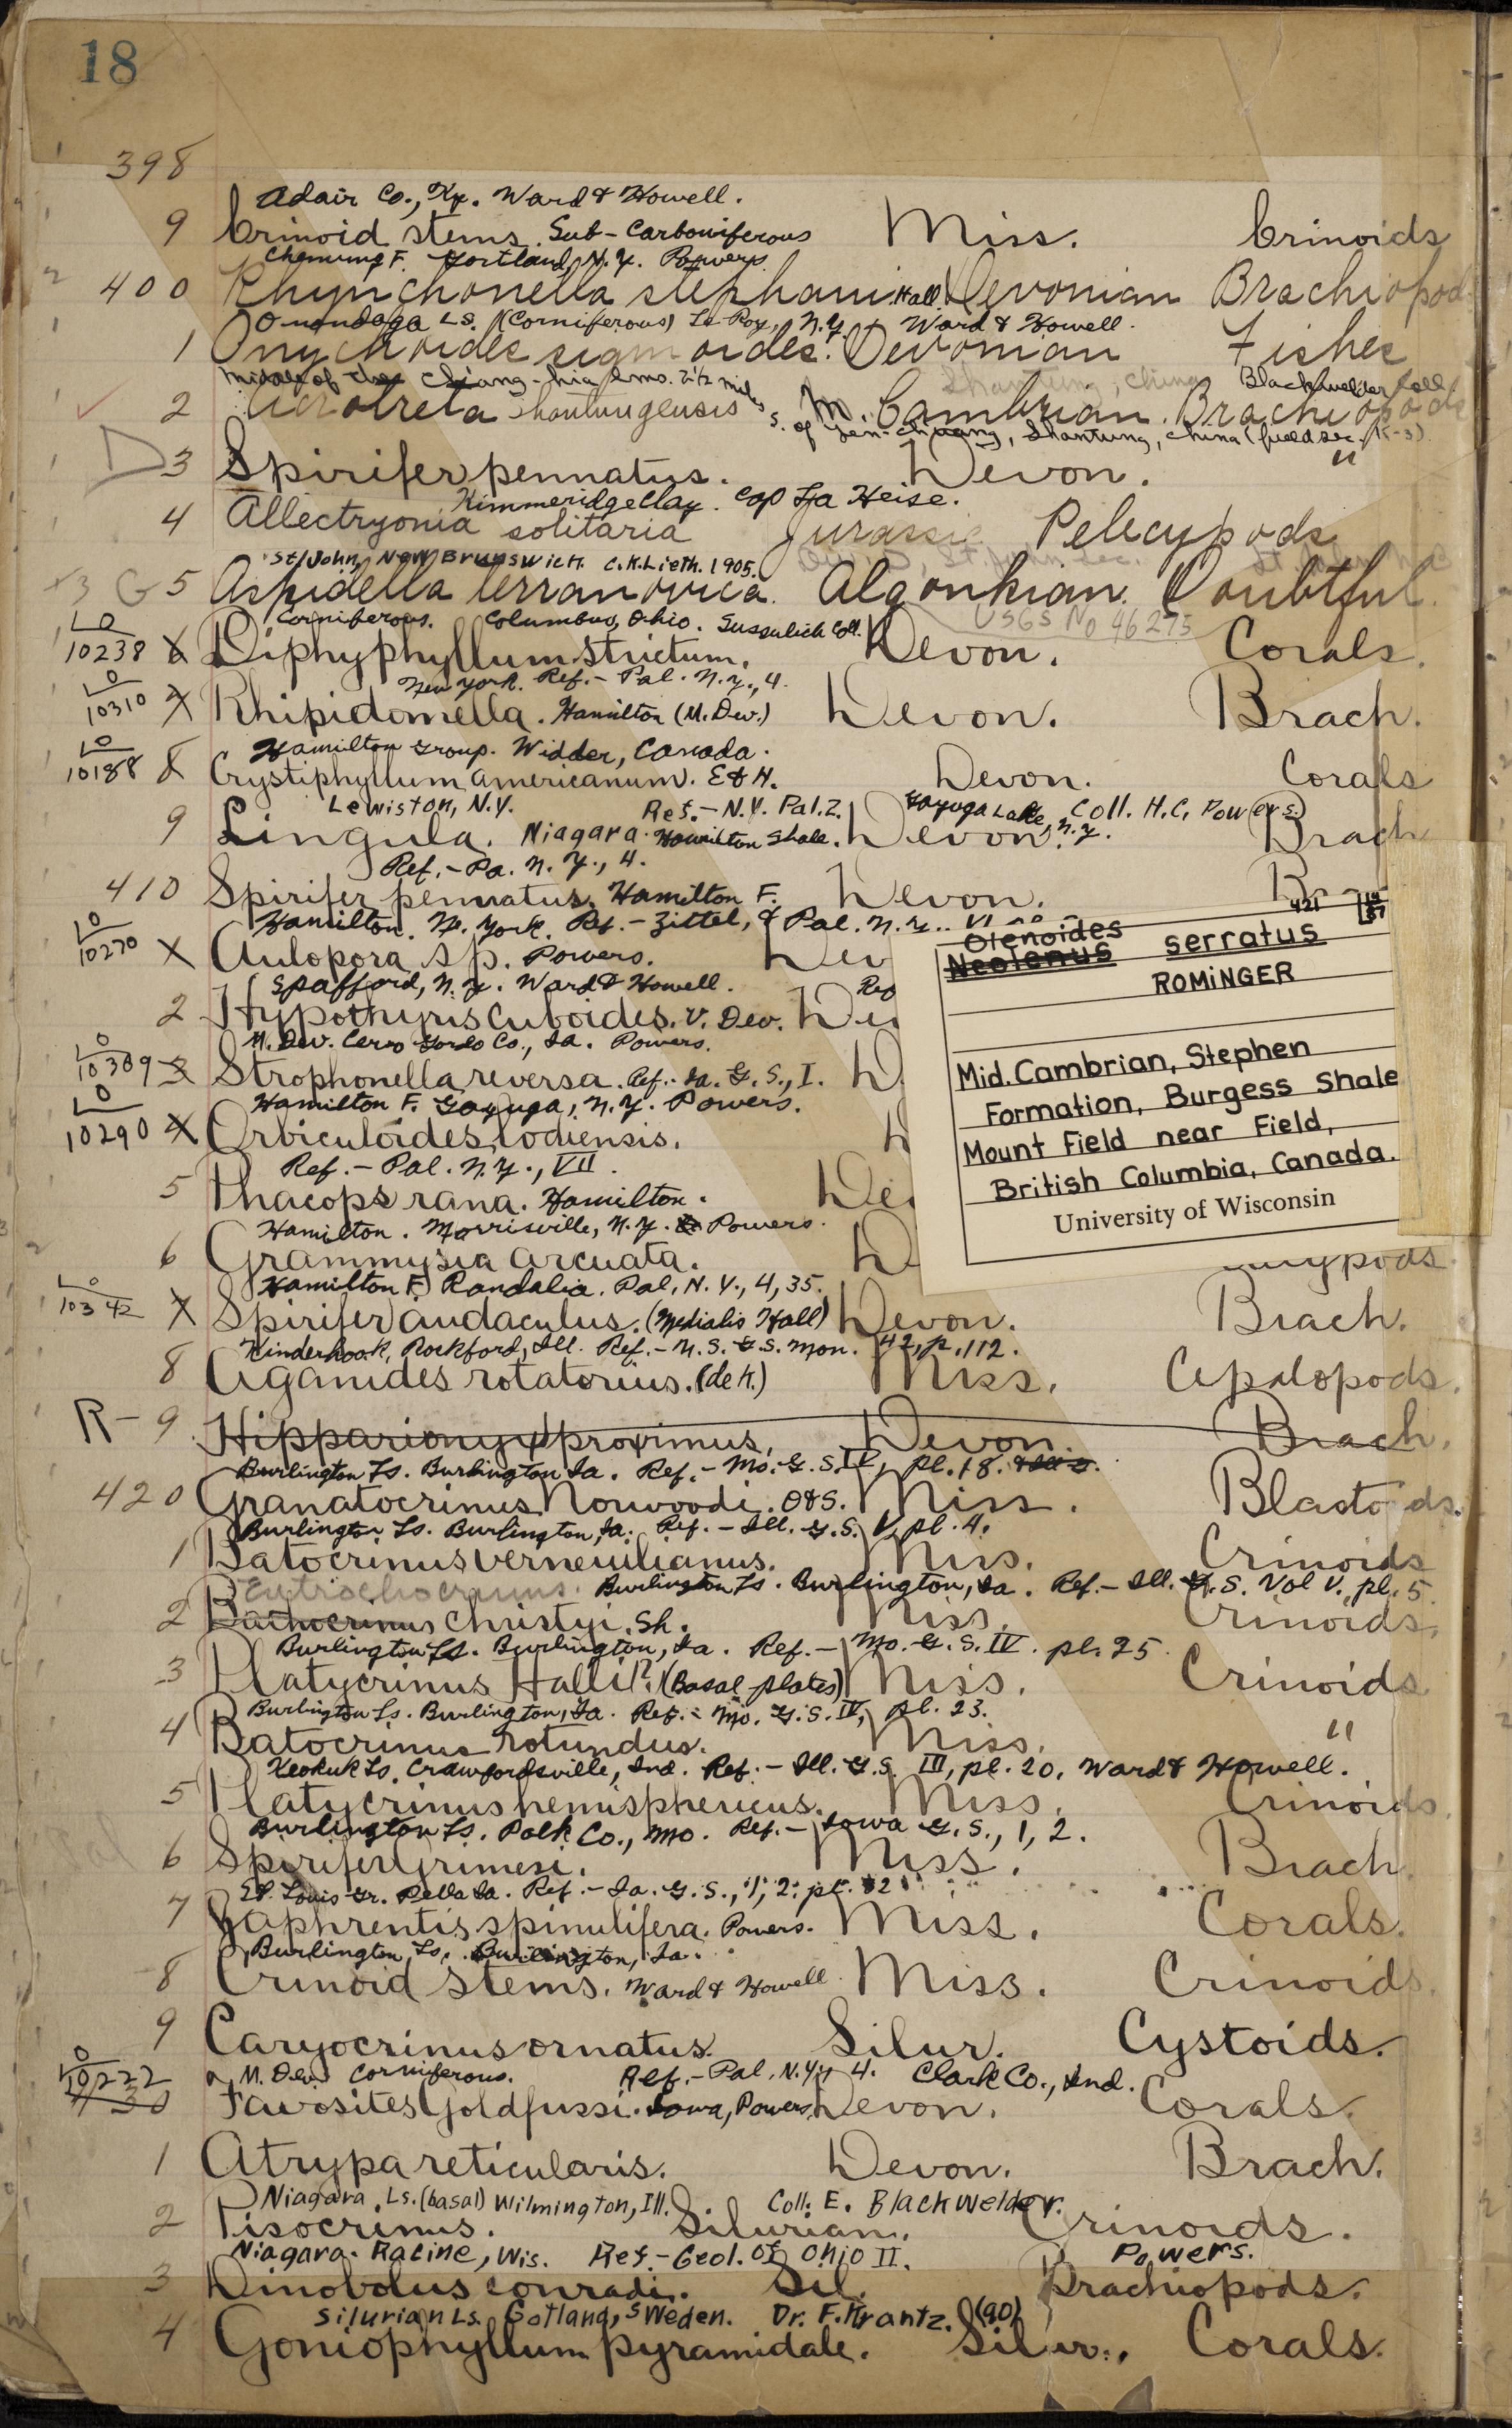 18
398
Adair Co., Ky. Ward & Howell.
9 Crinoid stems. Sub-Carboniferous Miss. Crinoids
Chemung F. Cortland, N.Y. Powers
400 Rhynchonella stephani Hall Devonian Brachiopods
Onondaga Ls. (Corniferous) Le Roy, N.Y. Ward & Howell.
1 Onychoides sigmoides. Devonian Fishes
Middle of the Chiang-hia lmo. 2 1/2 miles Shantung, China Blackwelder Coll
2 Acrotreta shantungensis M. Cambrian. Brachiopods
s. of Yen-chuang, Shantung, China (field sec.
D 3 Spirifer pennatus. Devon. "
Kimmeridge Clay. Cap La Heise.
4 Allectryonia solitaria Jurassic Pelecypods
St John, New Brunswick. C.K. Lieth. 1905.
G 5 Aspidella terranovica. Algonkian. Doubtful.
Corniferous. Columbus, Ohio. Coll. USGS No 46275
10238 6 Diphyphyllum strictum. Devon. Corals.
New York. Ref.- Pal. N.Y., 4.
10310 7 Rhipidomella. Hamilton (M. Dev.) Devon. Brach.
Hamilton Group. Widder, Canada.
10188 8 Crystiphyllum americanum. E & H. Devon. Corals
Lewiston, N.Y. Ref.- N.Y. Pal. 2. Cayuga Lake, N.Y. Coll. H.C. Powers.
9 Lingula. Niagara. Hamilton Shale. Devon. Brach
Ref.- Pa. N.Y., 4.
410 Spirifer pennatus. Hamilton F. Devon.
Hamilton. N. York. Ref.- Zittel, & Pal. N.Y.
10270 Aulopora sp. Powers.
Spafford, N.Y. Ward & Howell.
2 Hypothyris cuboides. U. Dev.
M. Dev. Cerro Gordo Co., Ia. Powers.
10309 3 Strophonella reversa. Ref.- Ia. G.S., I.
Hamilton F. Cayuga, N.Y. Powers.
10290 4 Orbiculoides lodiensis.
Ref.- Pal. N.Y., VII.
5 Phacops rana. Hamilton.
Hamilton. Morrisville, N.Y. Powers.
6 Grammysia arcuata.
Olenoides
Neolenus serratus
ROMINGER
Mid. Cambrian, Stephen
Formation, Burgess Shale
Mount Field near Field,
British Columbia, Canada.
University of Wisconsin
Hamilton F. Randalia. Pal, N.Y., 4, 35.
10342 Spirifer audaculus. (Medialis Hall) Devon. Brach.
Kinderhook, Rockford, Ill. Ref.- U.S.G.S. Mon. 42, p. 112.
8 Aganides rotatorius. (de K.) Miss. Cepalopods.
R- 9 Hipparionyx proximus. Devon. Brach.
Burlington Ls. Burlington Ia. Ref.- Mo. G.S. IV, pl. 18.
420 Granatocrinus Norwoodi. O & S. Miss. Blastoids.
Burlington Ls. Burlington, Ia. Ref.- Ill. G.S. V, pl. 4.
1 Batocrinus verneuilianus. Miss. Crinoids
Eutrochocrinus. Burlington Ls. Burlington, Ia. Ref.- Ill. G.S. Vol V. pl. 5.
2 Batocrinus Christyi. Sh. Miss. Crinoids.
Burlington Ls. Burlington, Ia. Ref.- Mo. G.S. IV. pl. 25.
3 Platycrinus Halli?. (Basal plates) Miss. Crinoids
Burlington Ls. Burlington, Ia. Ref.- Mo. G.S. IV, pl. 23.
4 Batocrinus rotundus. Miss. "
Keokuk Ls. Crawfordsville, Ind. Ref.- Ill. G.S. III, pl. 20. Ward & Howell.
5 Platycrinus hemisphericus. Miss. Crinoids.
Burlington Ls. Polk Co., Mo. Ref.- Iowa G.S., 1, 2.
6 Spirifer Grimesi. Miss. Brach.
St. Louis Gr. Pella Ia. Ref.- Ia. G.S., 1, 2; pl.
7 Zaphrentis spinulifera. Powers. Miss. Corals.
Burlington Ls. Burlington, Ia.
8 Crinoid stems. Ward & Howell Miss. Crinoids.
9 Caryocrinus ornatus. Silur. Cystoids.
M. Dev. Corniferous. Ref.- Pal. N.Y. 4. Clark Co., Ind.
10222 30 Favosites Goldfussi. Iowa, Powers. Devon. Corals.
1 Atrypa reticularis. Devon. Brach.
Niagara Ls. (basal) Wilmington, Ill. Coll. E. Blackwelder.
2 Pisocrinus. Silurian. Crinoids.
Niagara. Racine, Wis. Ref.- Geol. of Ohio II. Powers.
3 Dinobolus conradi. Sil. Brachiopods.
Silurian Ls. Gotland, Sweden. Dr. F. Krantz. (90)
4 Goniophyllum pyramidale. Silur. Corals.